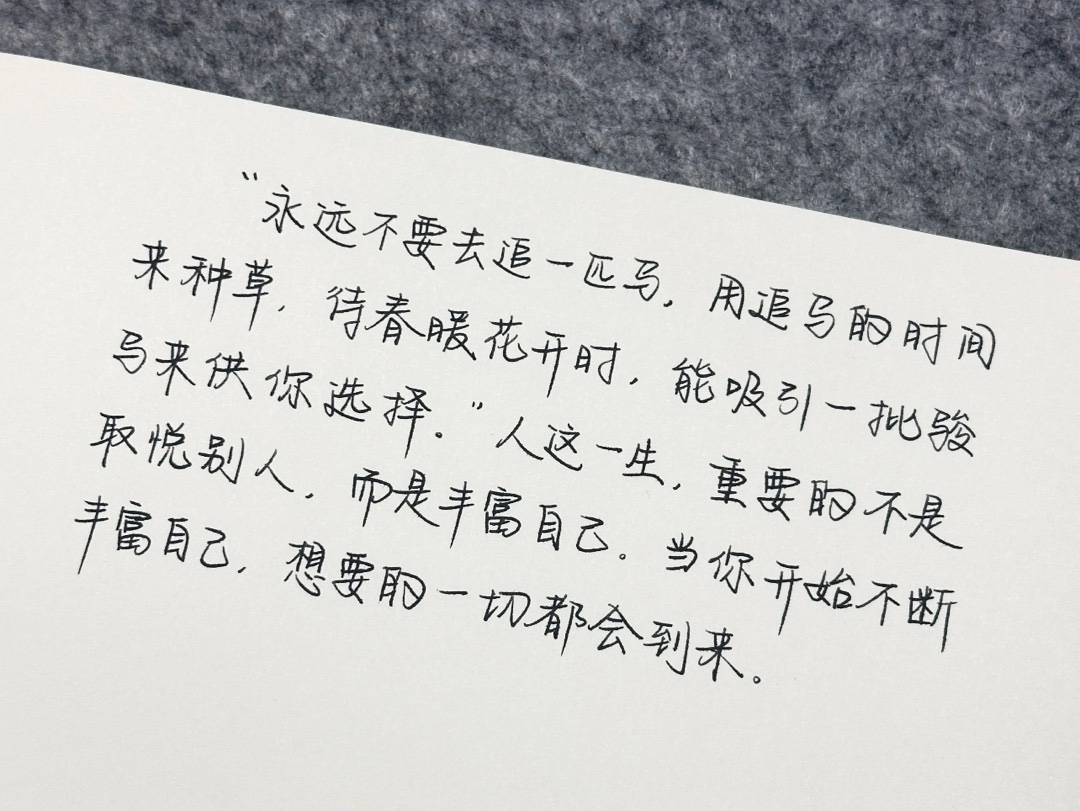 “永远不要去追一匹马，用追马的时间
来种草，待春暖花开时，能吸引一批骏
马来供你选择。”人这一生，重要的不是
取悦别人，而是丰富自己。当你开始不断
丰富自己，想要的一切都会到来。